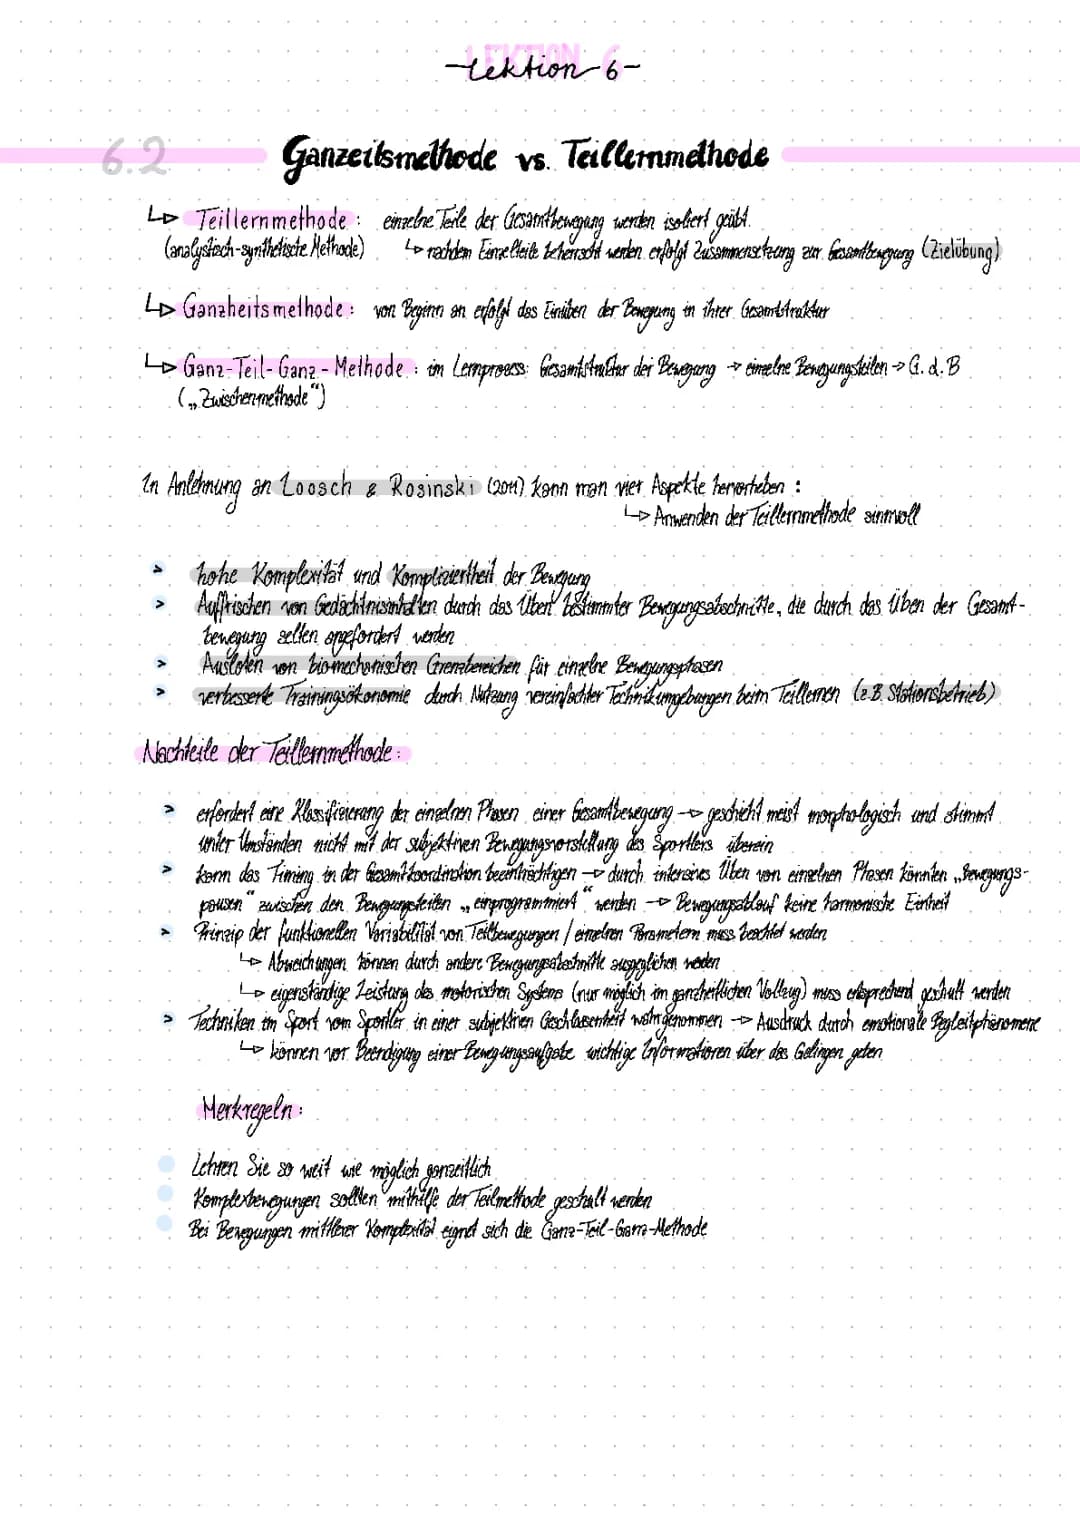 LEKTION 6
-Lektion 6-
6.2 Ganzeitsmethode vs. Teillernmethode
↳ Teillernmethode: einzelne Teile der Gesamtbewegung werden isoliert geübt.
(analystisch-synthetische Methode) ↳ nachdem Einzelteile beherrscht werden erfolgt Zusammensetzung zur Gesamtbewegung (Zielübung)
↳ Ganzheitsmethode: von Beginn an erfolgt das Einüben der Bewegung in ihrer Gesamtstruktur
↳ Ganz-Teil-Ganz-Methode: im Lernprozess: Gesamtstruktur der Bewegung → einzelne Bewegungsteilen → G. d. B
(„Zwischenmethode“)
In Anlehnung an Loosch & Rosinski (2011) kann man vier Aspekte hervorheben:
↳ Anwenden der Teillernmethode sinnvoll
> hohe Komplexität und Kompliziertheit der Bewegung
> Auffrischen von Gedächtnisinhalten durch das Üben bestimmter Bewegungsabschnitte, die durch das Üben der Gesamt-
bewegung selten angefordert werden
> Ausloten von biomechanischen Grenzbereichen für einzelne Bewegungsphasen
> verbesserte Trainingsökonomie durch Nutzung vereinfachter Technikumgebungen beim Teillernen (z.B. Stationsbetrieb)
Nachteile der Teillernmethode:
> erfordert eine Klassifizierung der einzelnen Phasen einer Gesamtbewegung → geschieht meist morphologisch und stimmt
unter Umständen nicht mit der subjektiven Bewegungsvorstellung des Sportlers überein
> kann das Timing in der Gesamtkoordination beeinträchtigen → durch intensives Üben von einzelnen Phasen könnten „Bewegungs-
pausen“ zwischen den Bewegungsteilen „einprogrammiert“ werden → Bewegungsablauf keine harmonische Einheit
> Prinzip der funktionellen Variabilität von Teilbewegungen / einzelnen Parametern muss beachtet werden
↳ Abweichungen können durch andere Bewegungsabschnitte ausgeglichen werden
↳ eigenständige Leistung des motorischen Systems (nur möglich im ganzheitlichen Vollzug) muss entsprechend geschult werden
> Techniken im Sport vom Sportler in einer subjektiven Geschlossenheit wahrgenommen → Ausdruck durch emotionale Begleitphänomene
↳ können vor Beendigung einer Bewegungsaufgabe wichtige Informationen über das Gelingen geben
Merkregeln:
Lehren Sie so weit wie möglich ganzeitlich
Komplexbewegungen sollten mithilfe der Teilmethode geschult werden
Bei Bewegungen mittlerer Komplexität eignet sich die Ganz-Teil-Ganz-Methode